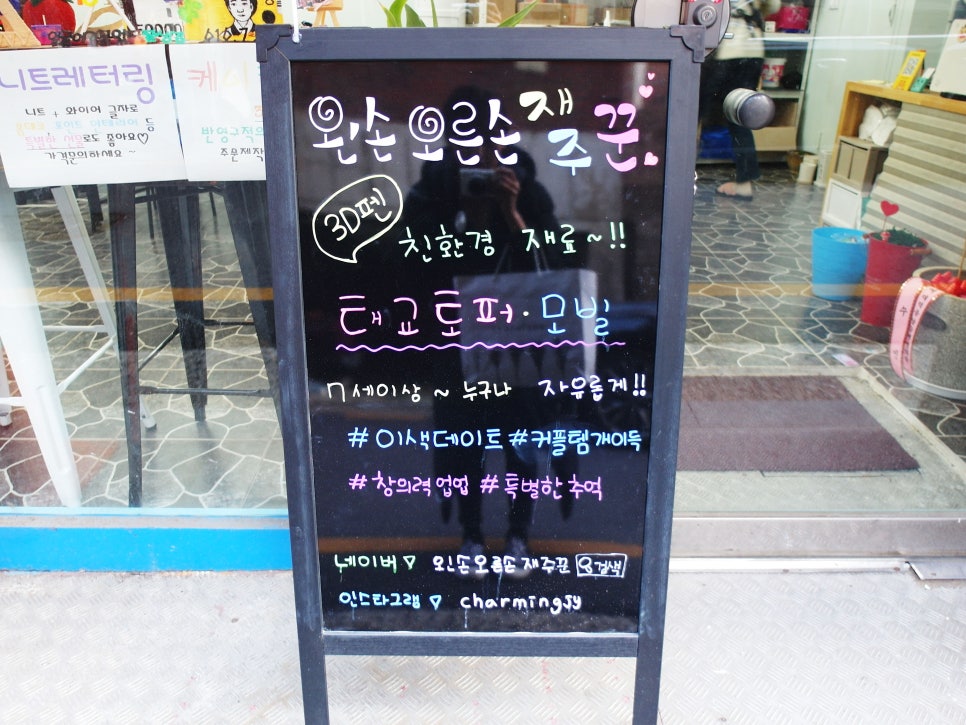 니트레터링
니트 + 와이어 글자로
등
특별한 선물로도 좋아요♡
가격문의하세요~
케이
반영구적의
주문제작
왼손 오른손 재주꾼
3D펜
친환경 재료~!!
태교토퍼·모빌
7세이상 ~ 누구나 자유롭게!!
#이색데이트 #커플템개이득
#창의력업업 #특별한추억
네이버 ▽ 왼손오른손재주꾼 검색
인스타그램 ▽ charmingsy